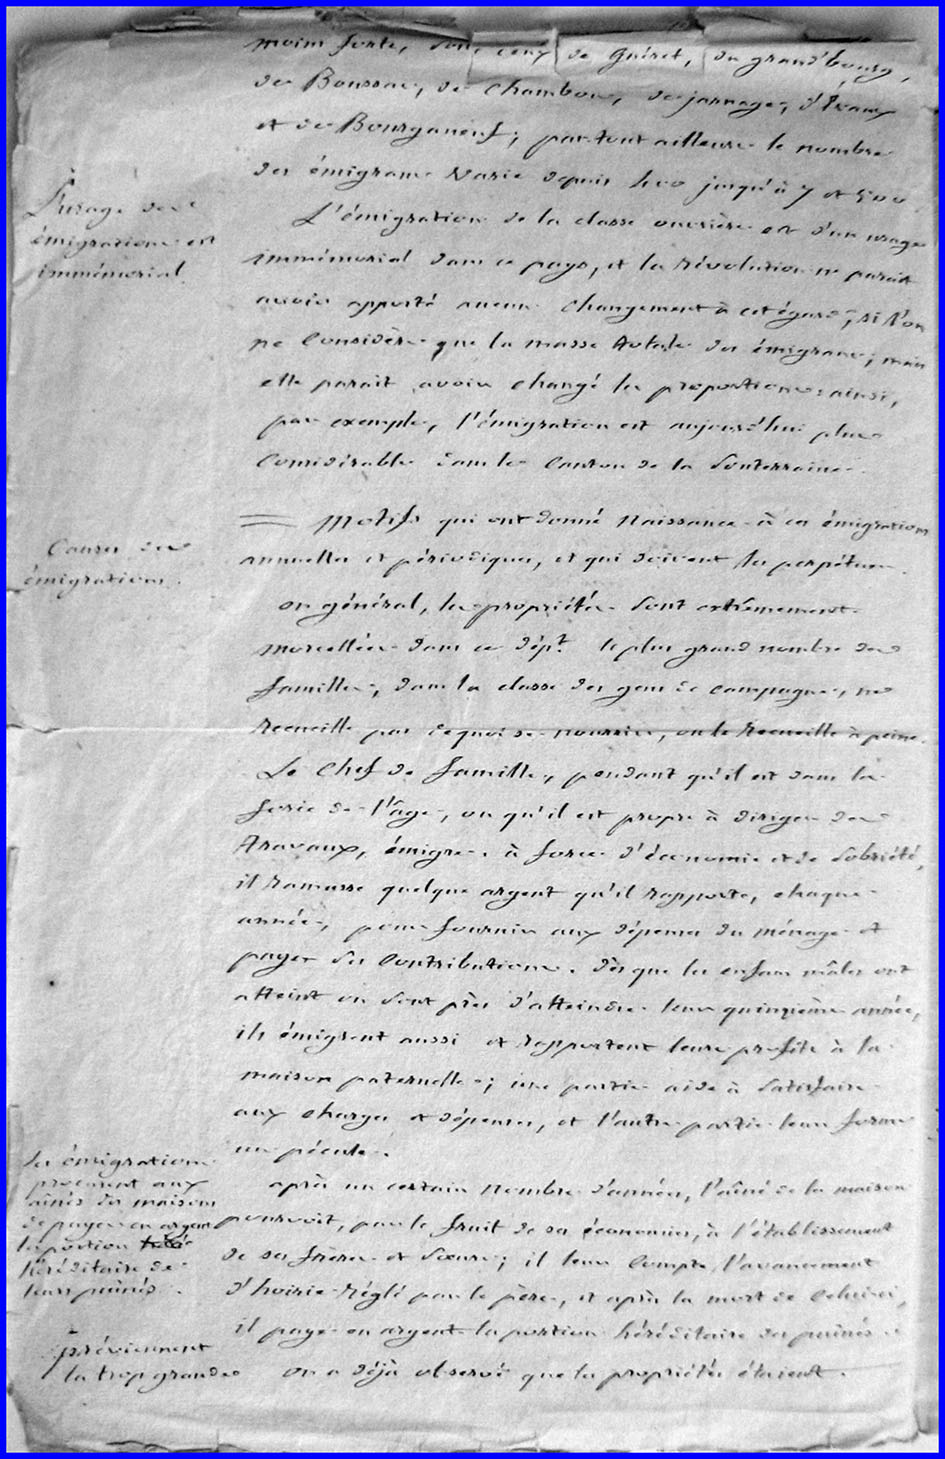 moins forte, sont ceux de Guéret, du grand'bourg,
de Boussac, de Chambon, de jarnages, d'Evaux
et de Bourganeuf; par-tout ailleurs le nombre
des émigrans varie depuis 400 jusqu'à 7 et 500
L'usage des
émigrations est
immémorial
L'émigration de la classe ouvrière est d'un usage
immémorial dans ce pays, et la révolution ne parait
avoir apporté aucun changement à cet égard, si l'on
ne Considère que la masse totale des émigrans; mais
elle parait avoir changé les proportions: ainsi,
par exemple, l'émigration est aujourd'hui plus
Considérable dans le Canton de la Souterraine.
Causes des
émigrations.
Motifs qui ont donné Naissance à ces émigrations
annuelles et périodiques, et qui doivent les perpétuer.
en général, les propriétés sont extrêmement
morcellées dans ce dépt. le plus grand nombre des
familles, dans la classe des gens de campagne, ne
recueille pas de quoi se nourrir, ou le recueille à peine.
Le Chef de famille, pendant qu'il est dans la
force de l'âge, ou qu'il est propre à diriger des
travaux, émigre. à force d'économie et de sobriété,
il ramasse quelque argent qu'il rapporte, chaque
année, pour fournir aux dépenses du ménage et
payer ses Contributions. dès que les enfans mâles ont
atteint ou sont près d'atteindre leur quinzième année,
ils émigrent aussi et rapportent leurs profits à la
maison paternelle; une partie aide à satisfaire
aux charges et dépenses, et l'autre partie leur forme
un pécule.
les émigrations
procurent aux
aînés des maisons
de payer en argent
la portion
héréditaire de
leurs puinés.
après un certain Nombre d'années, l'aîné de la maison
pourvoit, par le fruit de ses économies, à l'établissement
de ses frères et sœurs; il leur Compte l'avancement
d'hoirie réglé par le père, et après la mort de Celui-ci,
il paye en argent la portion héréditaire des puinés.
préviennent
la trop grande
on a déjà observé que les propriétés étaient